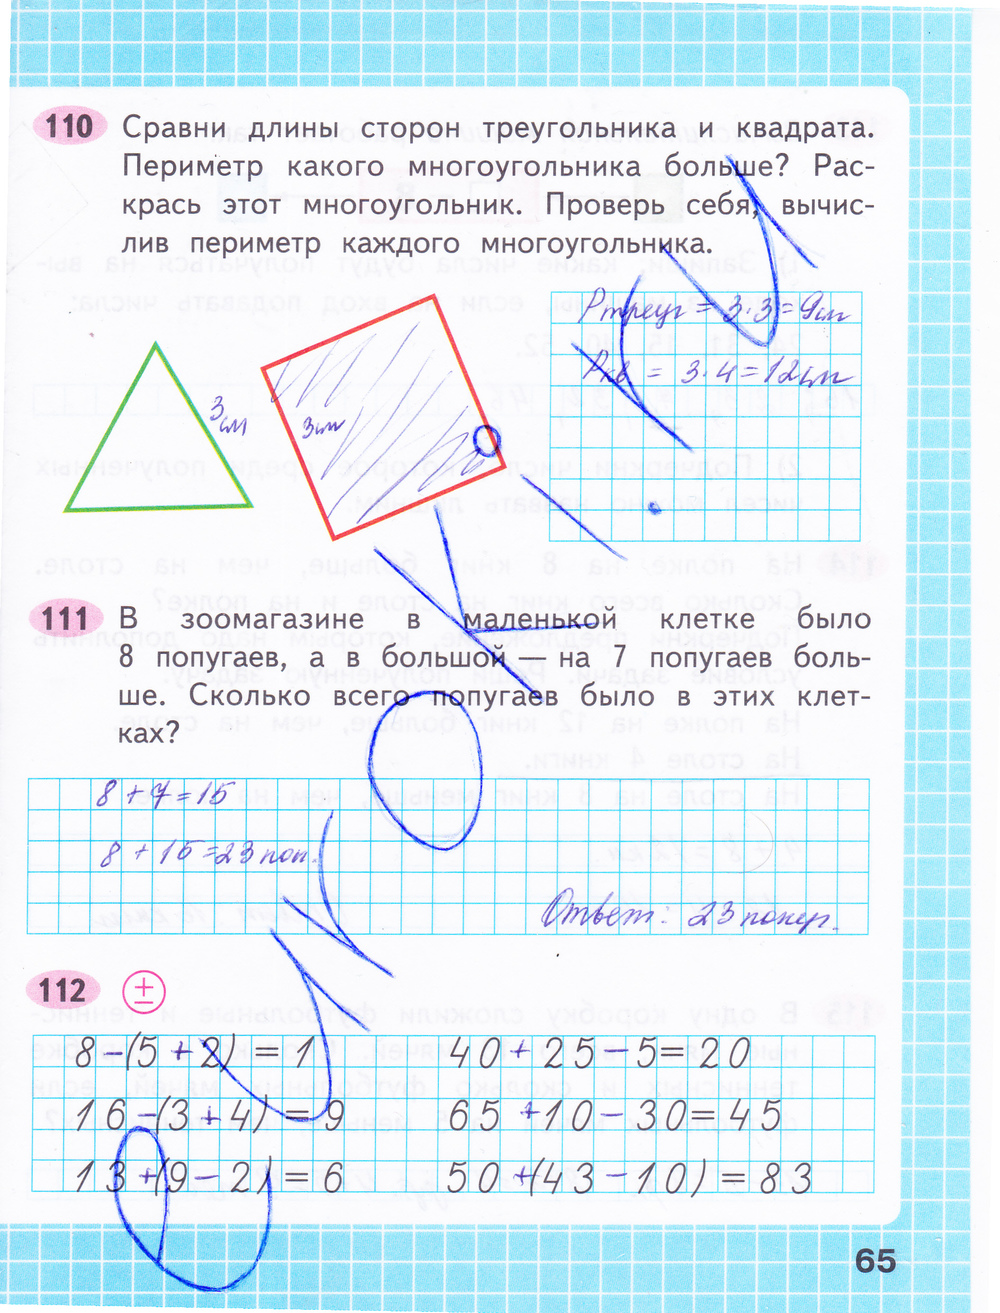 110 Сравни длины сторон треугольника и квадрата.
Периметр какого многоугольника больше? Рас-
крась этот многоугольник. Проверь себя, вычис-
лив периметр каждого многоугольника.
Pтреуг = 3·3=9см
Pкв = 3·4=12см
3 см
3см
111 В зоомагазине в маленькой клетке было
8 попугаев, а в большой — на 7 попугаев боль-
ше. Сколько всего попугаев было в этих клет-
ках?
8+7=15
8+15=23 поп.
Ответ: 23 попуг.
112 ±
8-(5+2)=1 40+25-5=20
16-(3+4)=9 65+10-30=45
13+(9-2)=6 50+(43-10)=83
65